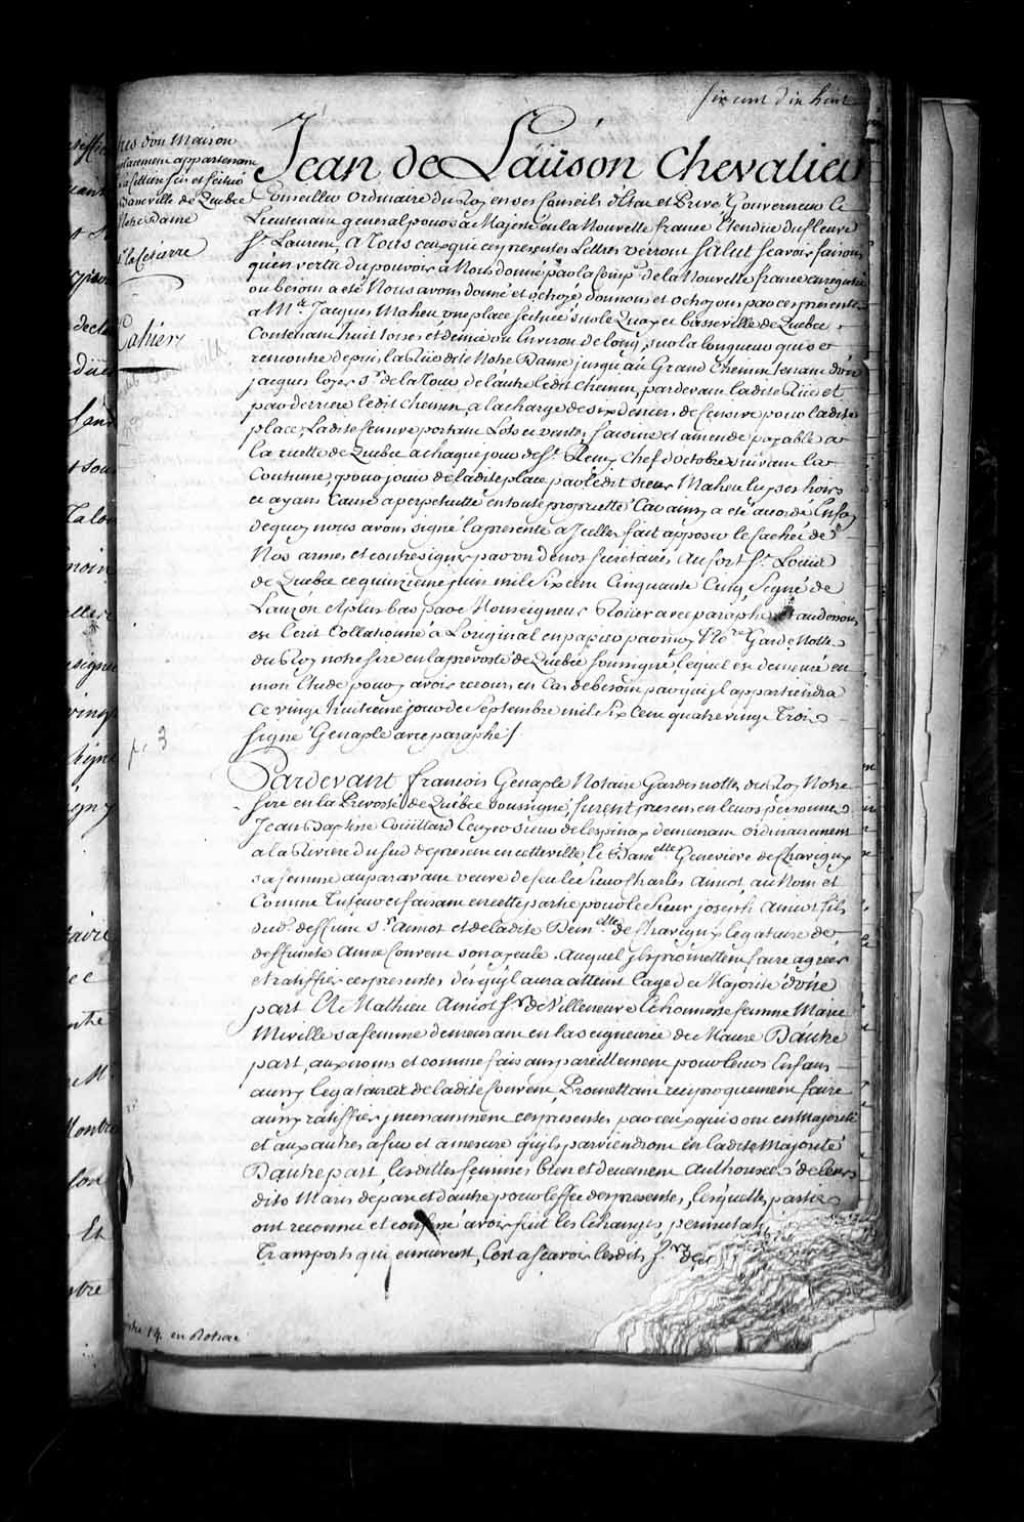 six cent dix huit
Jean de Laüson Chevalier
Conseiller ordinaire du Roy en ses Conseils d'Etat et Privé Gouverneur et
Lieutenant general pour sa Majesté en la Nouvelle france Etendue du fleuve
St. Laurent, a Tous ceux que ces presentes Lettres verront Salut scavoir faisons
qu'en vertu du pouvoir a Nous donné par la Comp. de la Nouvelle france
ou besoin a eté Nous avons donné et octroyé donnons et octroyons par ces presentes
a Mr. Jacques Maheu une place scituée sur le Quay et basseville de Quebec
Contenant huit toises et demie ou Environ de long, sur la longueur qui se
rencontre depuis la Rüe de Notre Dame jusqu'au Grand Chemin tenant d'un
jacques loyer Sr. de la Tour de l'autre ledit chemin, pardevant ladite Rüe et
par derriere ledit chemin, a la charge de six deniers de Censive pour ladite
place, Ladite Censive portant Lots et ventes, saisine et amende payable a
la recette de Quebec a chaque jour de St. Remy chef d'octobre suivant la
Coutume, pour jouir de ladite place par ledit sieur Maheu luy ses hoirs
et ayans Cause a perpetuité en toute proprieté Car ainsy a eté accordé En foy
dequoy nous avons signé la presente a Icelle fait apposer le cachet de
Nos armes et contresigner par un de nos secretaires, Au fort St. Loüis
de Quebec ce quinzieme juin mil six cent Cinquante Cinq Signé de
Lauzon et plus bas par Monseigneur Roüer avec paraphe et au dessous
est Ecrit Collationné a L'original en papier par moy No.re Garde Nottes
du Roy notre Sire en la prevosté de Quebec soussigné lequel est demeuré en
mon Etude pour y avoir recours en Cas de besoin par qui il appartiendra
Ce vingt huitieme jour de Septembre mil six Cent quatre vingt Trois
Signé Genaple avec paraphe /
Pardevant francois Genaple Notaire Gardenottes du Roy Notre
Sire en la Prevosté de Quebec soussigné, furent presens en leurs personnes
Jean Baptiste Coüillard Ecuyer sieur de lespinay demeurant ordinairement
a la Riviere du Sud de present en cette ville, et Dam.elle Genevieve de Chavigny
sa femme auparavant veuve de feu le Sieur Charles Amiot, au Nom et
Comme Tuteur et faisant en cette partie pour le Sieur joseph Amiot fils
dud. deffunt Sr. Amiot et de ladite Dem.elle de Chavigny legataire de
deffuncte Anne Convent son ayeule. Auquel ils promettent faire agréer
et ratiffier ces presentes dès qu'il aura atteint l'age de Majorité d'une
part Et Mathieu Amiot Sr. de Villeneuve et honneste femme Marie
Miville sa femme demeurant en la seigneurie de Maure D'autre
part, aux noms et comme faisans pareillement pour leurs Enfans
aussy legataires de ladite Convent, Promettant reciproquement faire
aussy ratiffier incessamment ces presentes par ceux qui sont en Majorité
et aux autres a fur et a mesure qu'ils parviendront en ladite Majorité
D'autre part, lesdittes femmes bien et deuement authorisées de leurs
dits Maris de part et d'autre pour l'effet des presentes, lesquelles parties
ont reconnu et confessé avoir fait les Echanges permutat
Transports qui ensuivent, C'est a scavoir lesdits Srs. de
d'un Maison
emplacement appartenant
scis et scitué
basse ville de Quebec
Notre Dame
Cahier
p. 3
14. en Roture